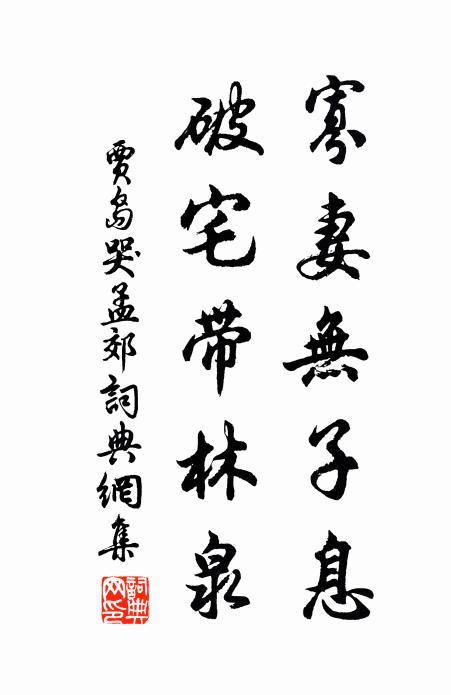 寡妻無子息
破宅带林泉
賈島哭孟郊詞典網集
詞典
网印